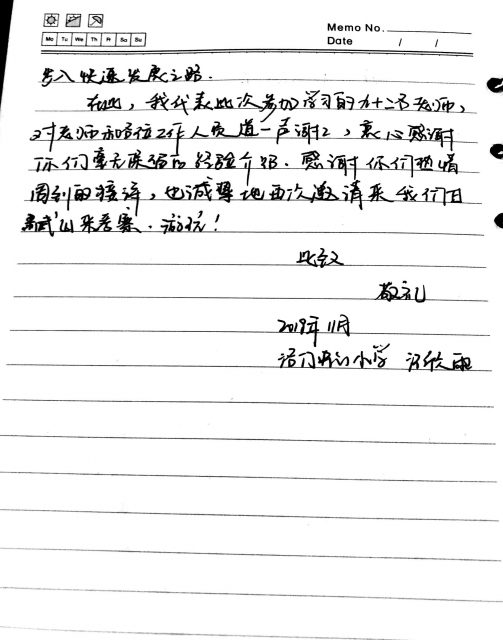 Memo No.
Mo Tu We Th Fr Sa Su
Date / /
步入快速发展之路.
在此，我代表此次参加学习的九十二名老师，
对老师和各位工作人员道一声谢谢，衷心感谢
你们毫无保留的经验介绍. 感谢你们热情
周到的接待，也诚挚地再次邀请来我们
武 山来考察. 游玩！
此致
敬礼
2019年11月
小学